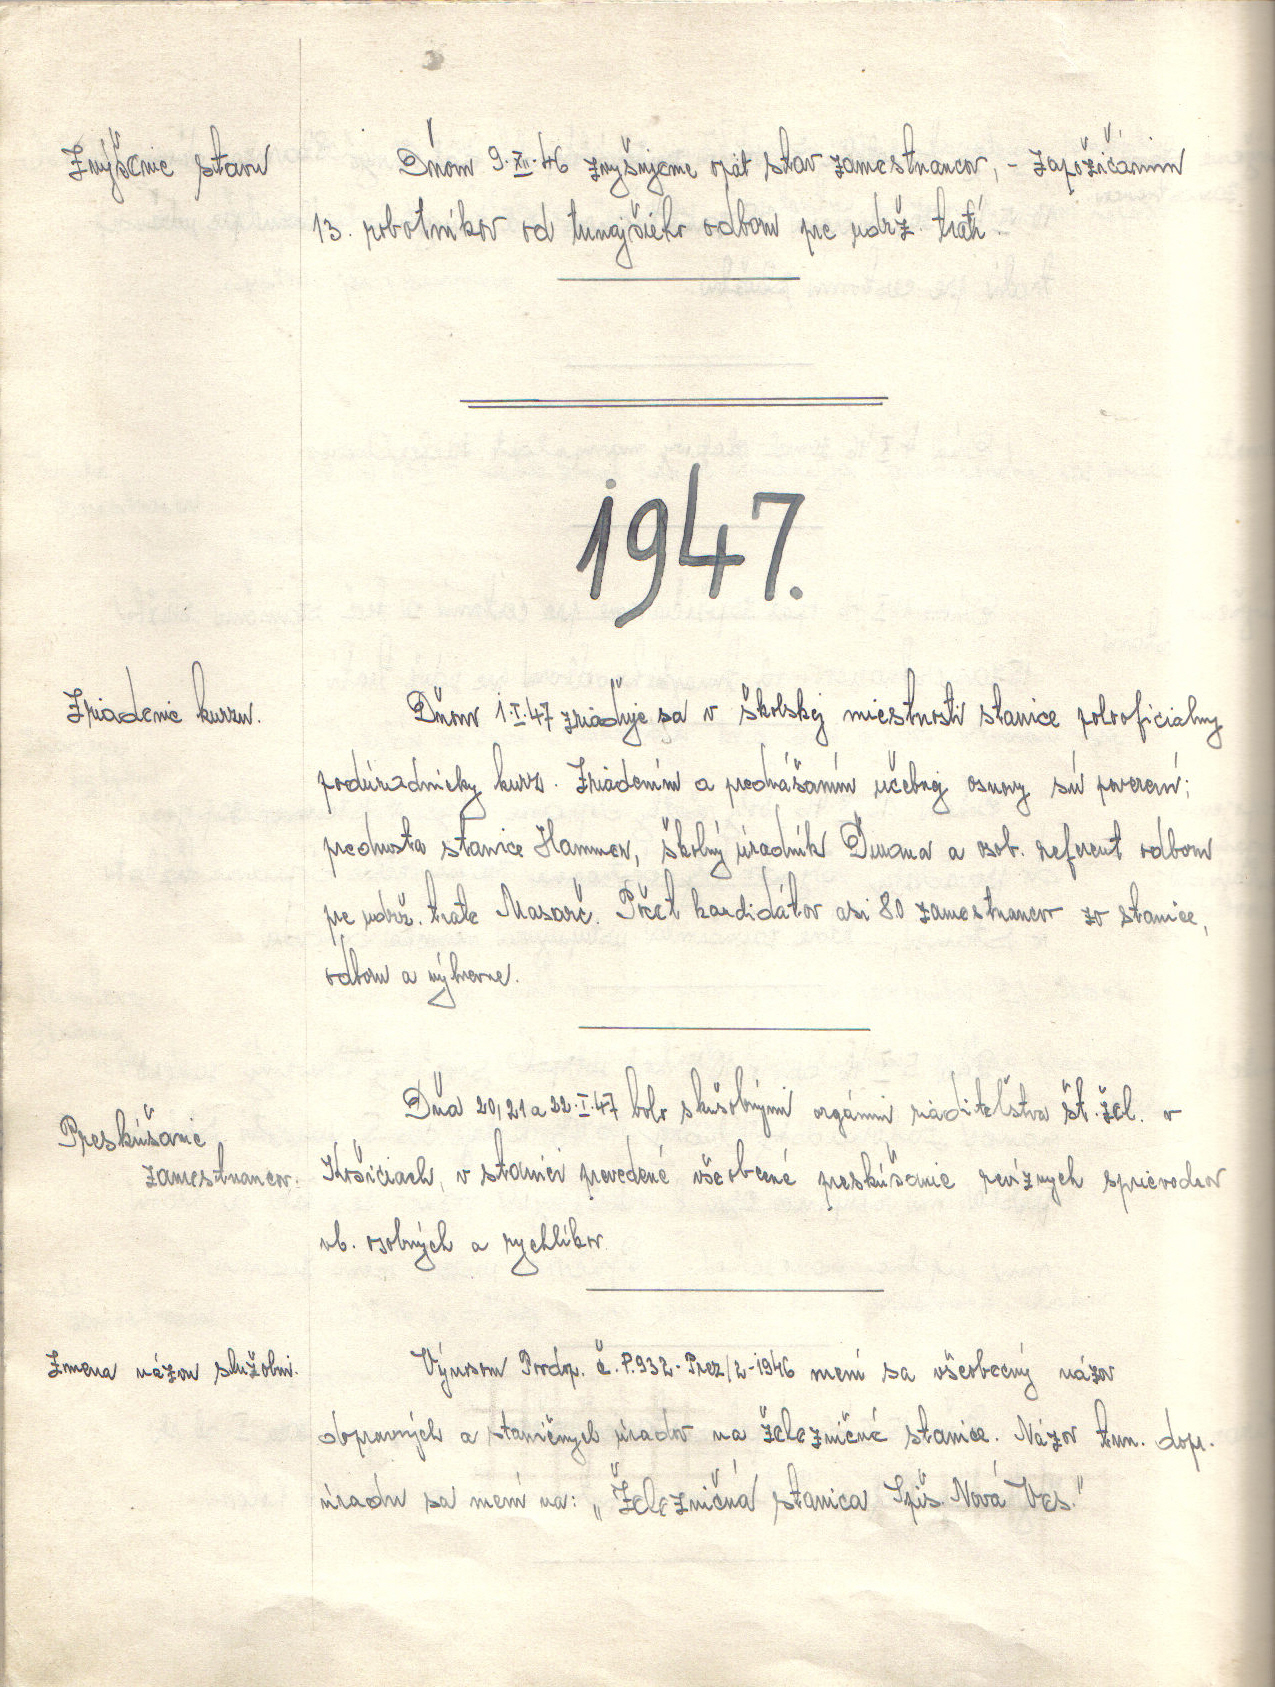 Zvýšenie stavu
Dňom 9.XII.46 zvyšujeme opäť stav zamestnancov, - zapožičaním
13. robotníkov od tunajšieho odboru pre udrž. trati.
1947.
Zriadenie kurzu.
Dňom 1.I.47 zriaďuje sa v školskej miestnosti stanice poloficiálny
podúradnícky kurz. Zriadením a prednášaním učebnej osnovy sú poverení:
prednosta stanice Hammer, školný úradník Ďurana a osob. referent odboru
pre udrž. trate Masarč. Počet kandidátov asi 80 zamestnancov zo stanice,
odboru a výhrevne.
Preskúšanie
zamestnancov.
Dňa 20, 21 a 22.I.47 bolo skúšobnými orgánmi riaditeľstva št. žel. v
Košiciach, v stanici prevedené všeobecné preskúšanie revíznych sprievodcov
vb. osobných a rychlíkov
Zmena názvu služobni.
Výnosom Povdop. č. P.932-Prez/2-1946 mení sa všeobecný názov
dopravných a staničnych úradov na železničné stanice. Názov tun. dopr.
úradu sa mení na: „Železničná stanica Spiš. Nová Ves."